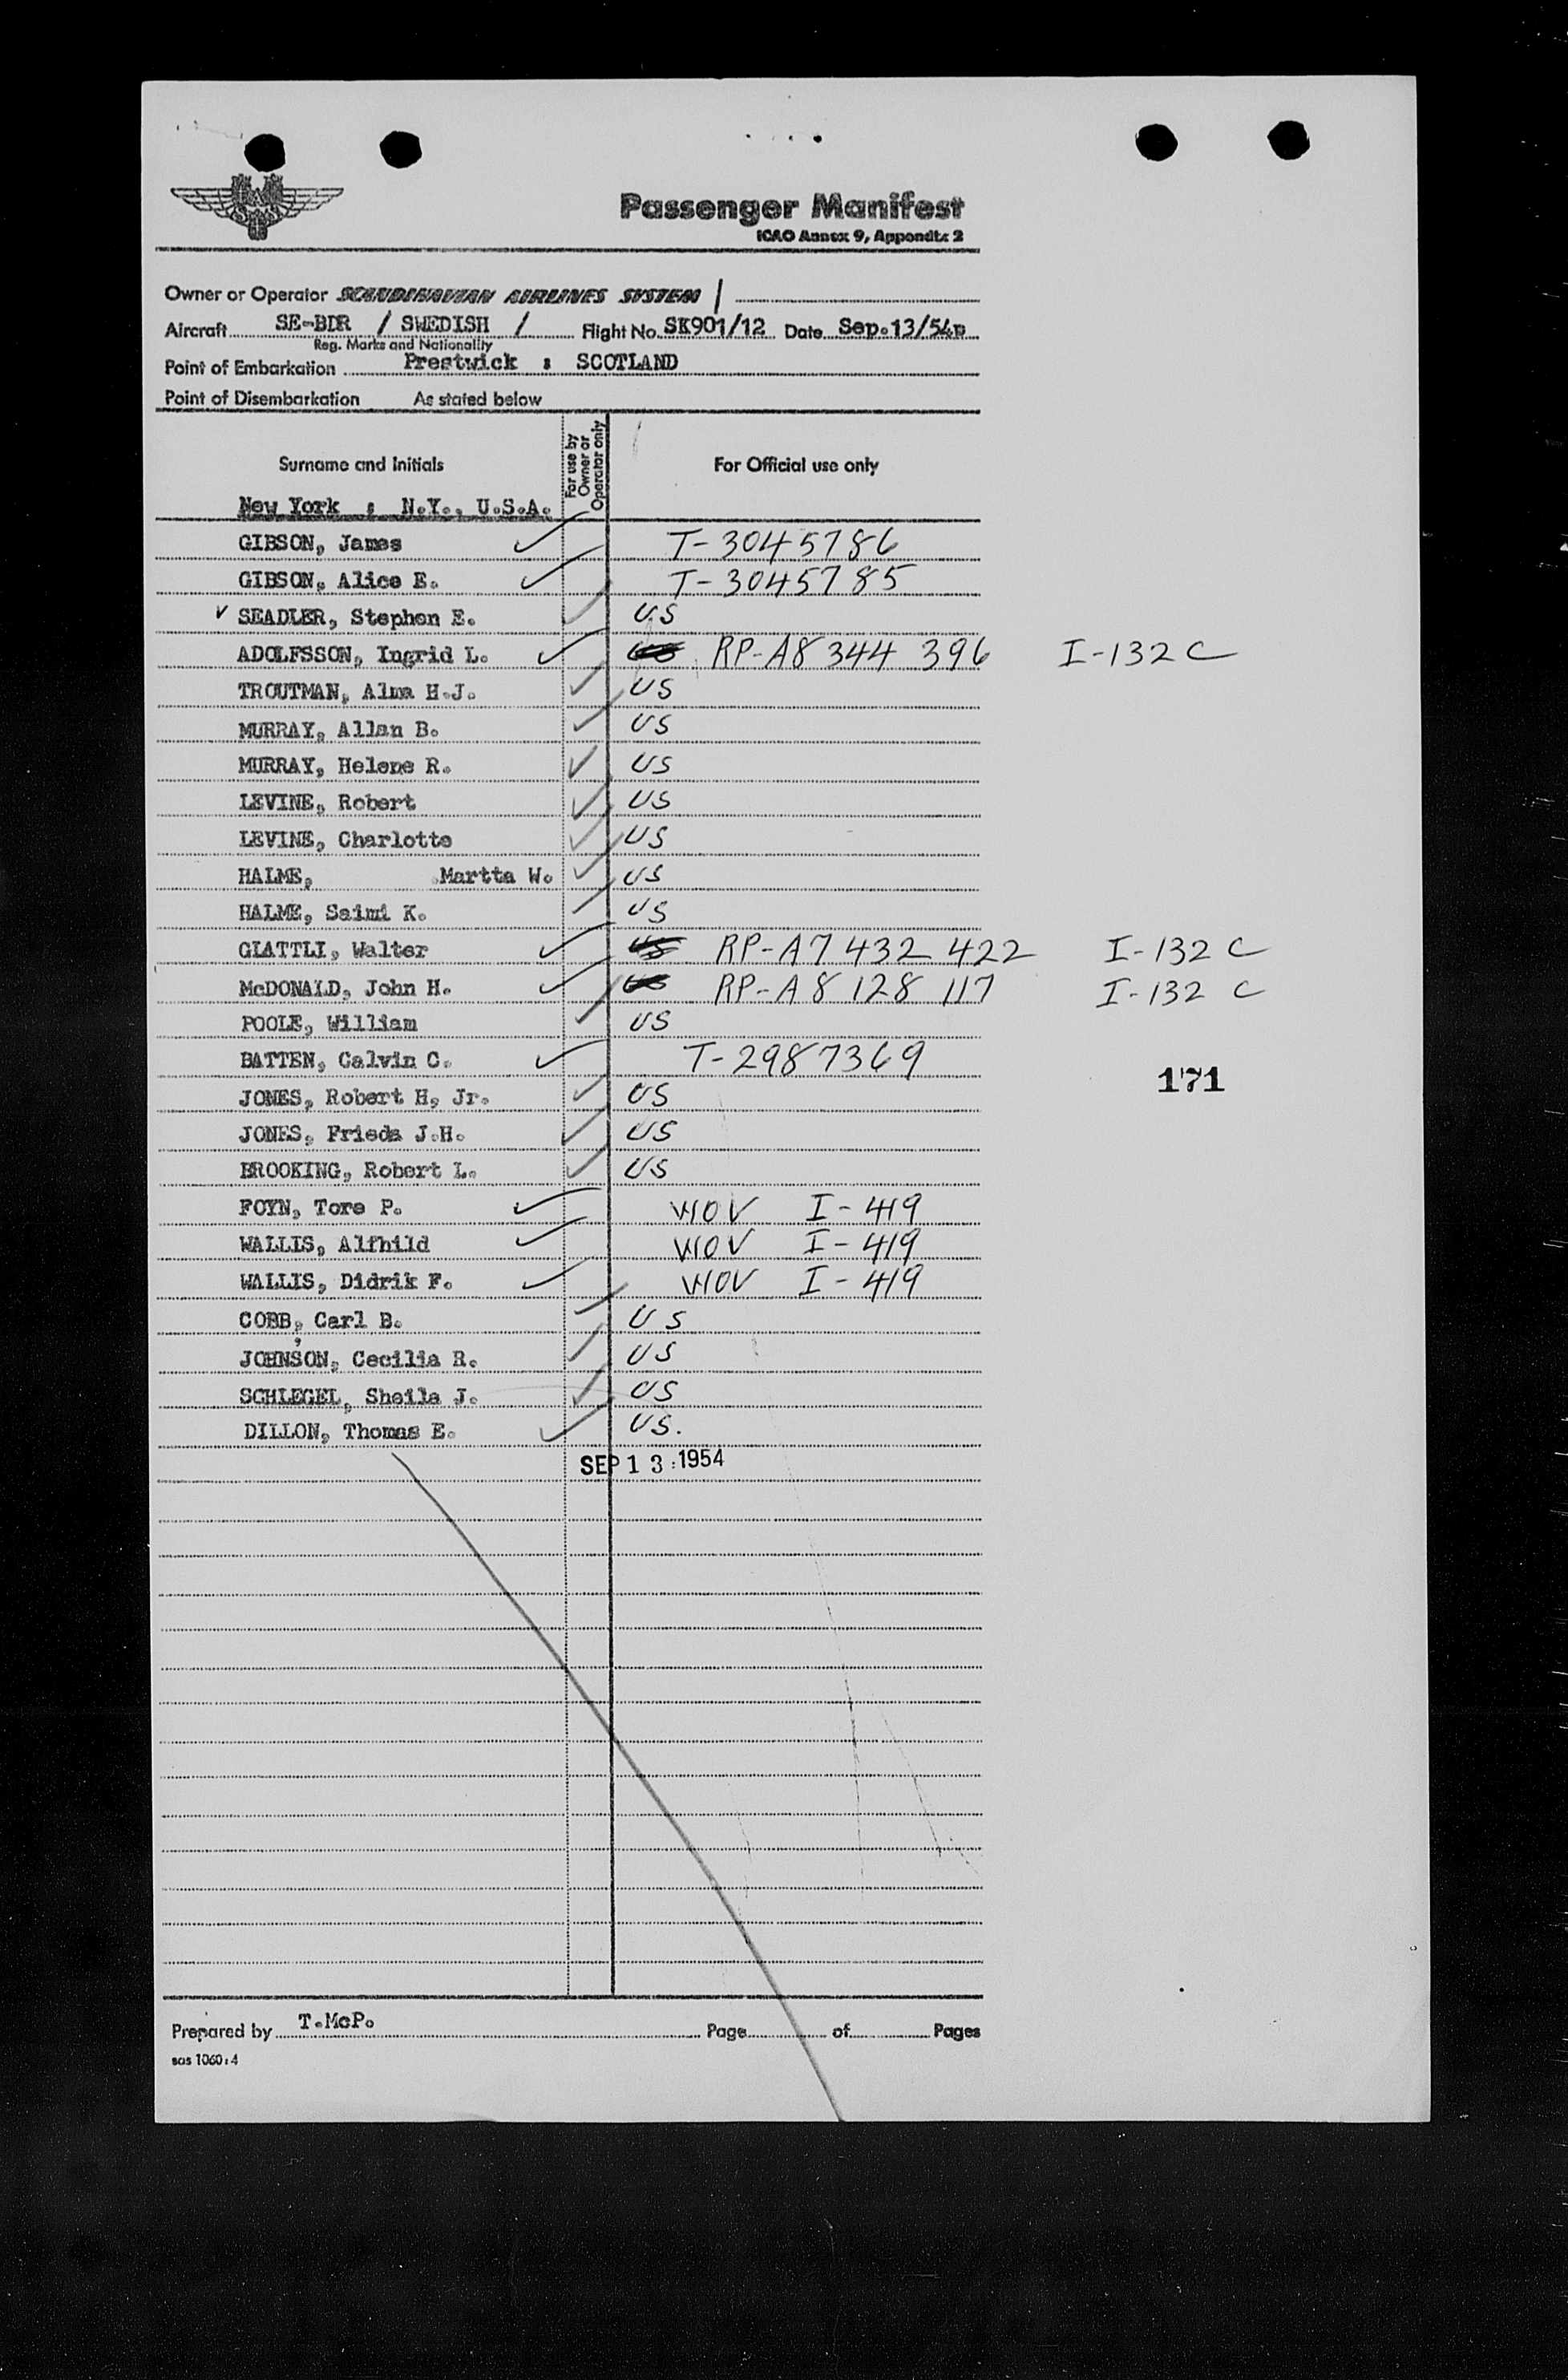 SAS
Passenger Manifest
ICAO Annex 9, Appendix 2
Owner or Operator SCANDINAVIAN AIRLINES SYSTEM /
Aircraft SE-BDR / SWEDISH / Flight No. SK901/12 Date Sep.13/54
Reg. Marks and Nationality
Point of Embarkation Prestwick : SCOTLAND
Point of Disembarkation As stated below
Surname and Initials For use by Owner or Operator only For Official use only
New York : N.Y., U.S.A.
GIBSON, James ✓ T-3045786
GIBSON, Alice E. ✓ T-3045785
✓ SEADLER, Stephen E. ✓ US
ADOLFSSON, Ingrid L. ✓ US RP-A8 344 396 I-132 C
TROUTMAN, Alma H.J. ✓ US
MURRAY, Allan B. ✓ US
MURRAY, Helene R. ✓ US
LEVINE, Robert ✓ US
LEVINE, Charlotte ✓ US
HALME, Martta W. ✓ US
HALME, Saimi K. ✓ US
GLATTLI, Walter ✓ US RP-A7 432 422 I-132 C
McDONALD, John H. ✓ US RP-A 8 128 117 I-132 C
POOLE, William ✓ US
BATTEN, Calvin C. ✓ T-2987369
171
JONES, Robert H, Jr. ✓ US
JONES, Frieda J.H. ✓ US
BROOKING, Robert L. ✓ US
FOYN, Tore P. ✓ WOV I-419
WALLIS, Alfhild ✓ WOV I-419
WALLIS, Didrik F. ✓ WOV I-419
COBB, Carl B. ✓ US
JOHNSON, Cecilia R. ✓ US
SCHLEGEL, Sheila J. ✓ US
DILLON, Thomas E. ✓ US.
SEP 13 1954
Prepared by T.McP. Page of Pages
sas 1060:4